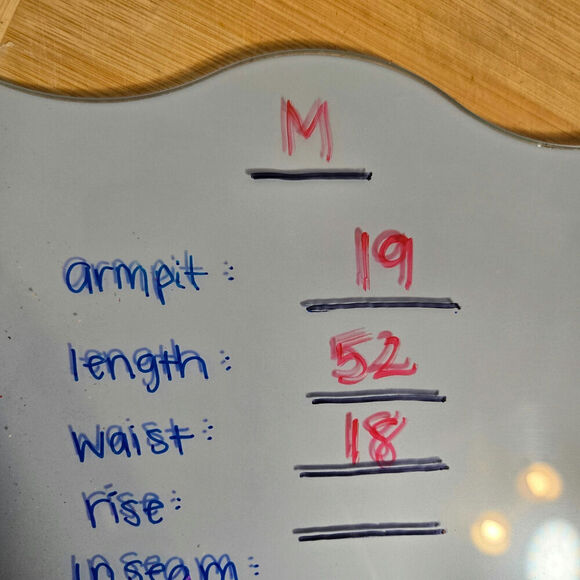 M
armpit: 19
length: 52
waist: 18
rise:
inseam: